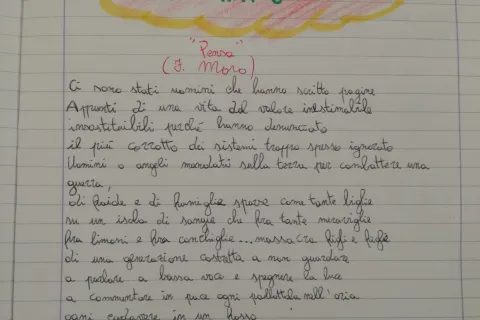 "Pensa"
(F. Moro)
Ci sono stati uomini che hanno scritto pagine
Appunti di una vita dal valore inestimabile
insostituibili perché hanno denunciato
il più corrotto dei sistemi troppo spesso ignorato
Uomini o angeli mandati sulla terra per combattere una
guerra,
di faide e di famiglie sparse come tante biglie
su un isola di sangue che fra tante meraviglie
fra limoni e fra conchiglie... massacra figli e figlie
di una generazione costretta a non guardare
a parlare a bassa voce e spegnere la luce
a commentare in pace ogni pallottola nell'aria
ogni cadavere in un fosso